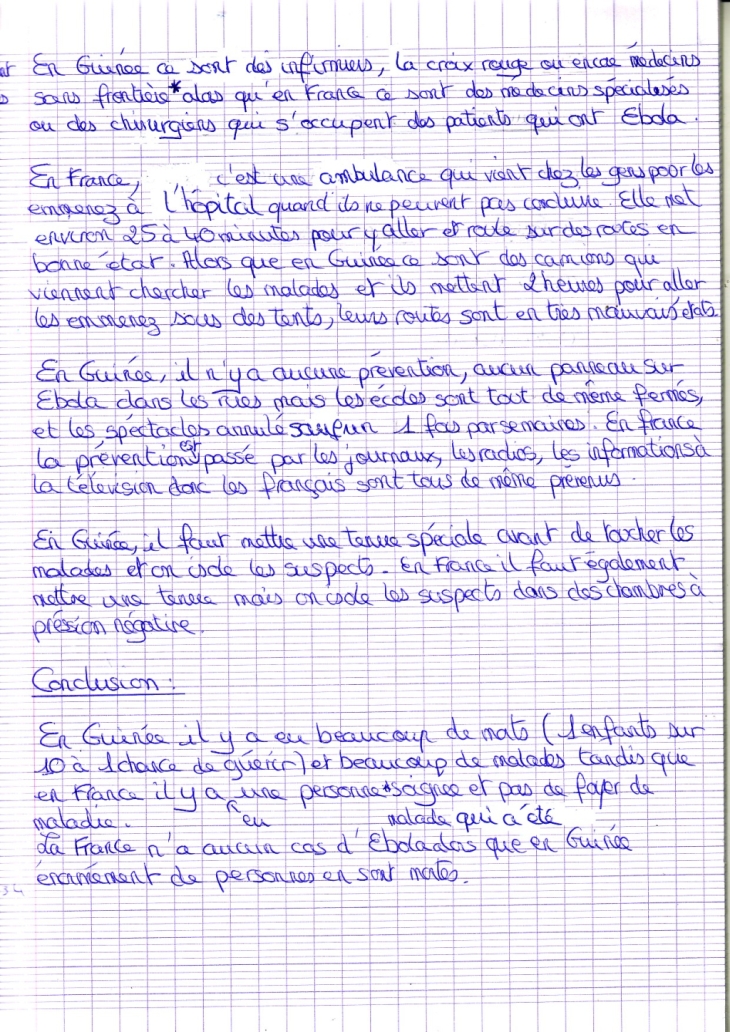 En Guinée ce sont des infirmiers, la croix rouge ou encore médecins
sans frontière* alors qu'en France ce sont des médecins spécialesés
ou des chirurgiens qui s'occupent des patients qui ont Ebola.
En France, c'est une ambulance qui vient chez les gens pour les
emmenez à l'hôpital quand ils ne peuvent pas conduire. Elle met
environ 25 à 40 minutes pour y aller et roule sur des routes en
bonne état. Alors que en Guinée ce sont des camions qui
viennent chercher les malades et ils mettent 2 heures pour aller
les emmenez sous des tents, leurs routes sont en très mauvais états
En Guinée, il n'y a aucune prévention, aucun panneau sur
Ebola dans les rues mais les écoles sont tout de même fermés,
et les spectacles annulé sauf un 1 fois par semaines. En france
la prévention est passé par les journaux, les radios, les informations à
la télévision donc les français sont tous de même prévenus.
En Guinée, il faut mettre une tenue spéciale avant de toucher les
malades et on isole les suspects. En France il faut également
mettre une tenue mais on isole les suspects dans des chambres à
préssion négative.
Conclusion :
En Guinée il y a eu beaucoup de mots (1 enfants sur
10 à 1 chance de guérir) et beaucoup de malades tandis que
en France il y a une personne soignée et pas de foyer de
maladie. eu malade qui a été
La France n'a aucun cas d'Ebola alors que en Guinée
énormément de personnes en sont mortes.
34